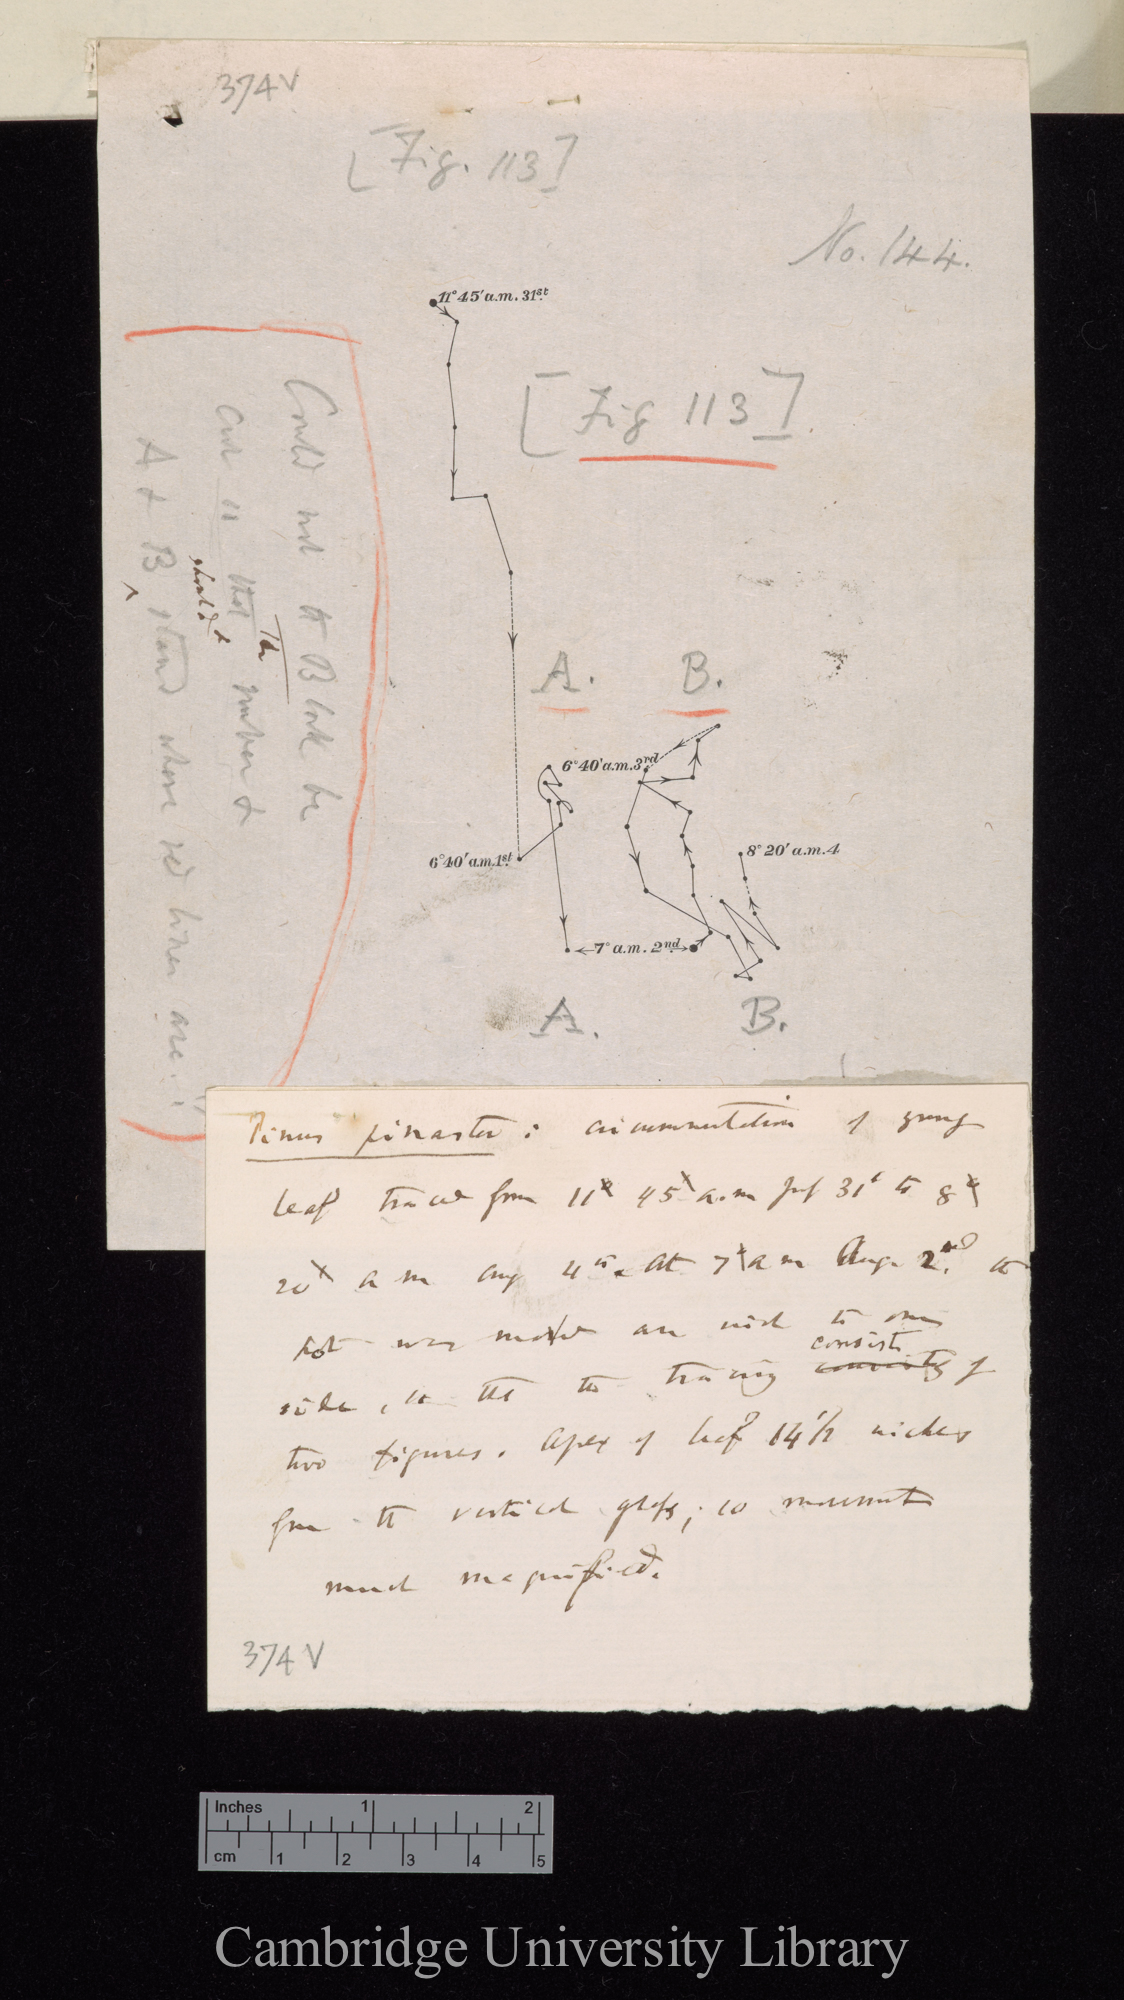 374 V
[Fig. 113]
No. 144.
11° 45' a.m. 31st.
[Fig 113].
Could not the B look be
cut in that the number &
should
A & B stand where red lines are.
A. B.
6° 40' a.m. 3rd
6° 40' a.m. 1st.
8° 20' a.m. 4
7° a.m. 2nd
A. B.
Pinus pinaster: circumnutation of young
leaf traced from 11 45 a.m July 31st to 8
20 a m Aug 4th. At 7 a m Aug. 2nd. the
pot was moved an inch to one
side, so tht the tracing consists of
two figures. Apex of leaf 14½ inches
from the vertical glass; so movement
much magnified.
374 V
Inches 1 2
cm 1 2 3 4 5
Cambridge University Library